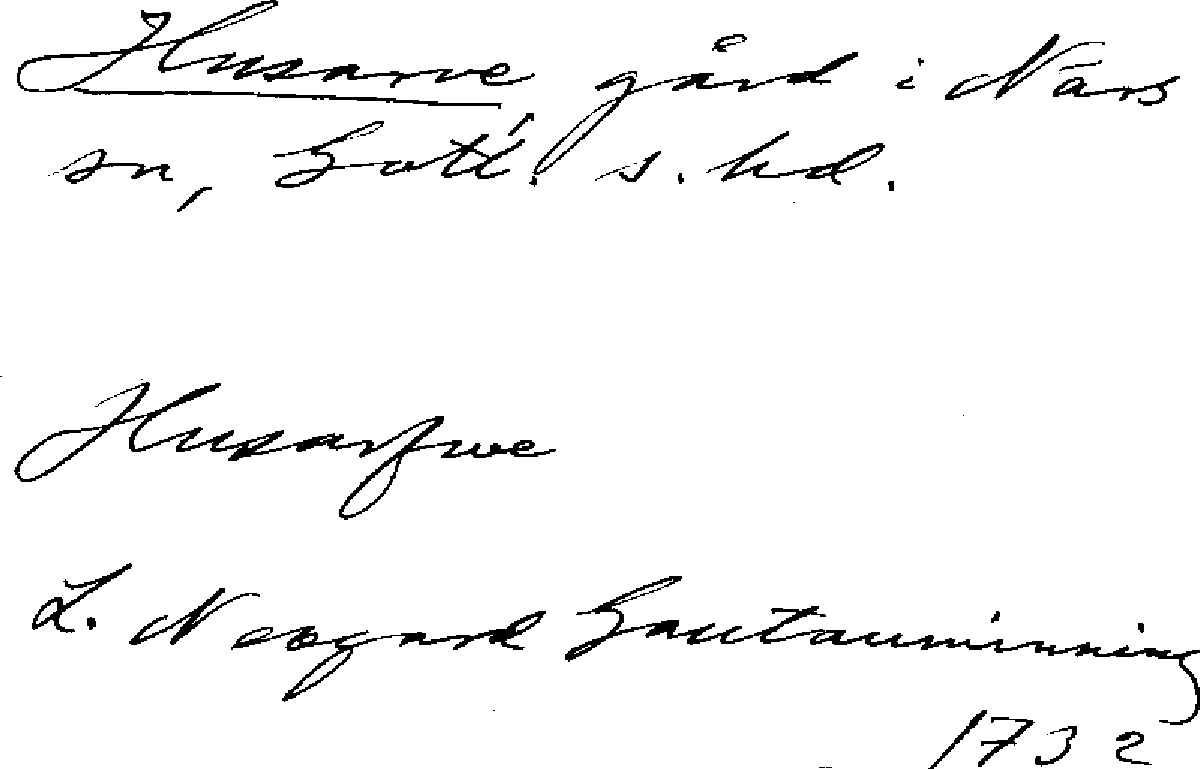 Husarve gård i När
sn, Gotl. s. hd.
Husarfwe
L. Neogard Gautauminning
1732